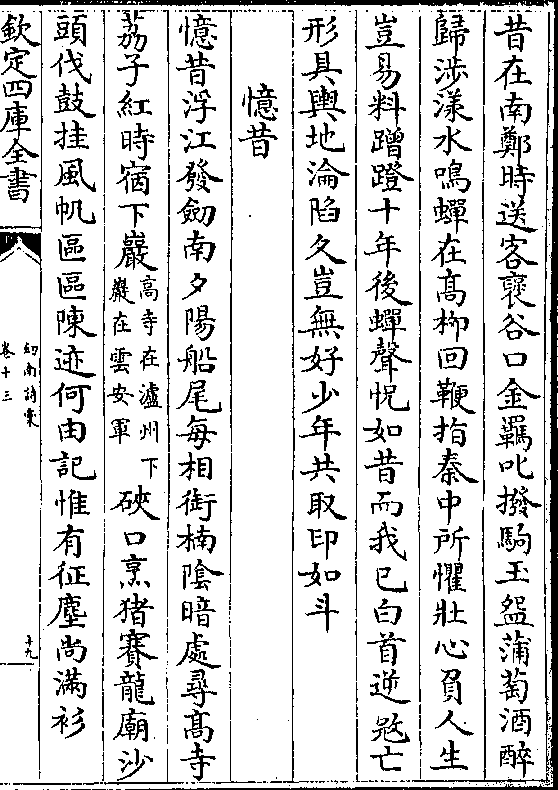 昔在南鄭時送客褒谷口金羈叱撥駒玉盌蒲萄酒醉
歸涉漾水鳴蟬在髙栁回鞭指秦中所懼壯心負人生
豈易料蹭蹬十年後蟬聲怳如昔而我已白首逆𠒋亡
形具輿地淪陷久豈無好少年共取印如斗
憶昔
憶昔浮江發劒南夕陽船尾每相銜楠隂暗處尋髙寺
荔子紅時宿下巖髙寺在瀘州下
巖在雲安軍硤口烹猪賽龍廟沙
頭伐鼓挂風帆區區陳迹何由記惟有征塵尚滿衫
欽定四庫全書
劒南詩稾
卷十三
十九